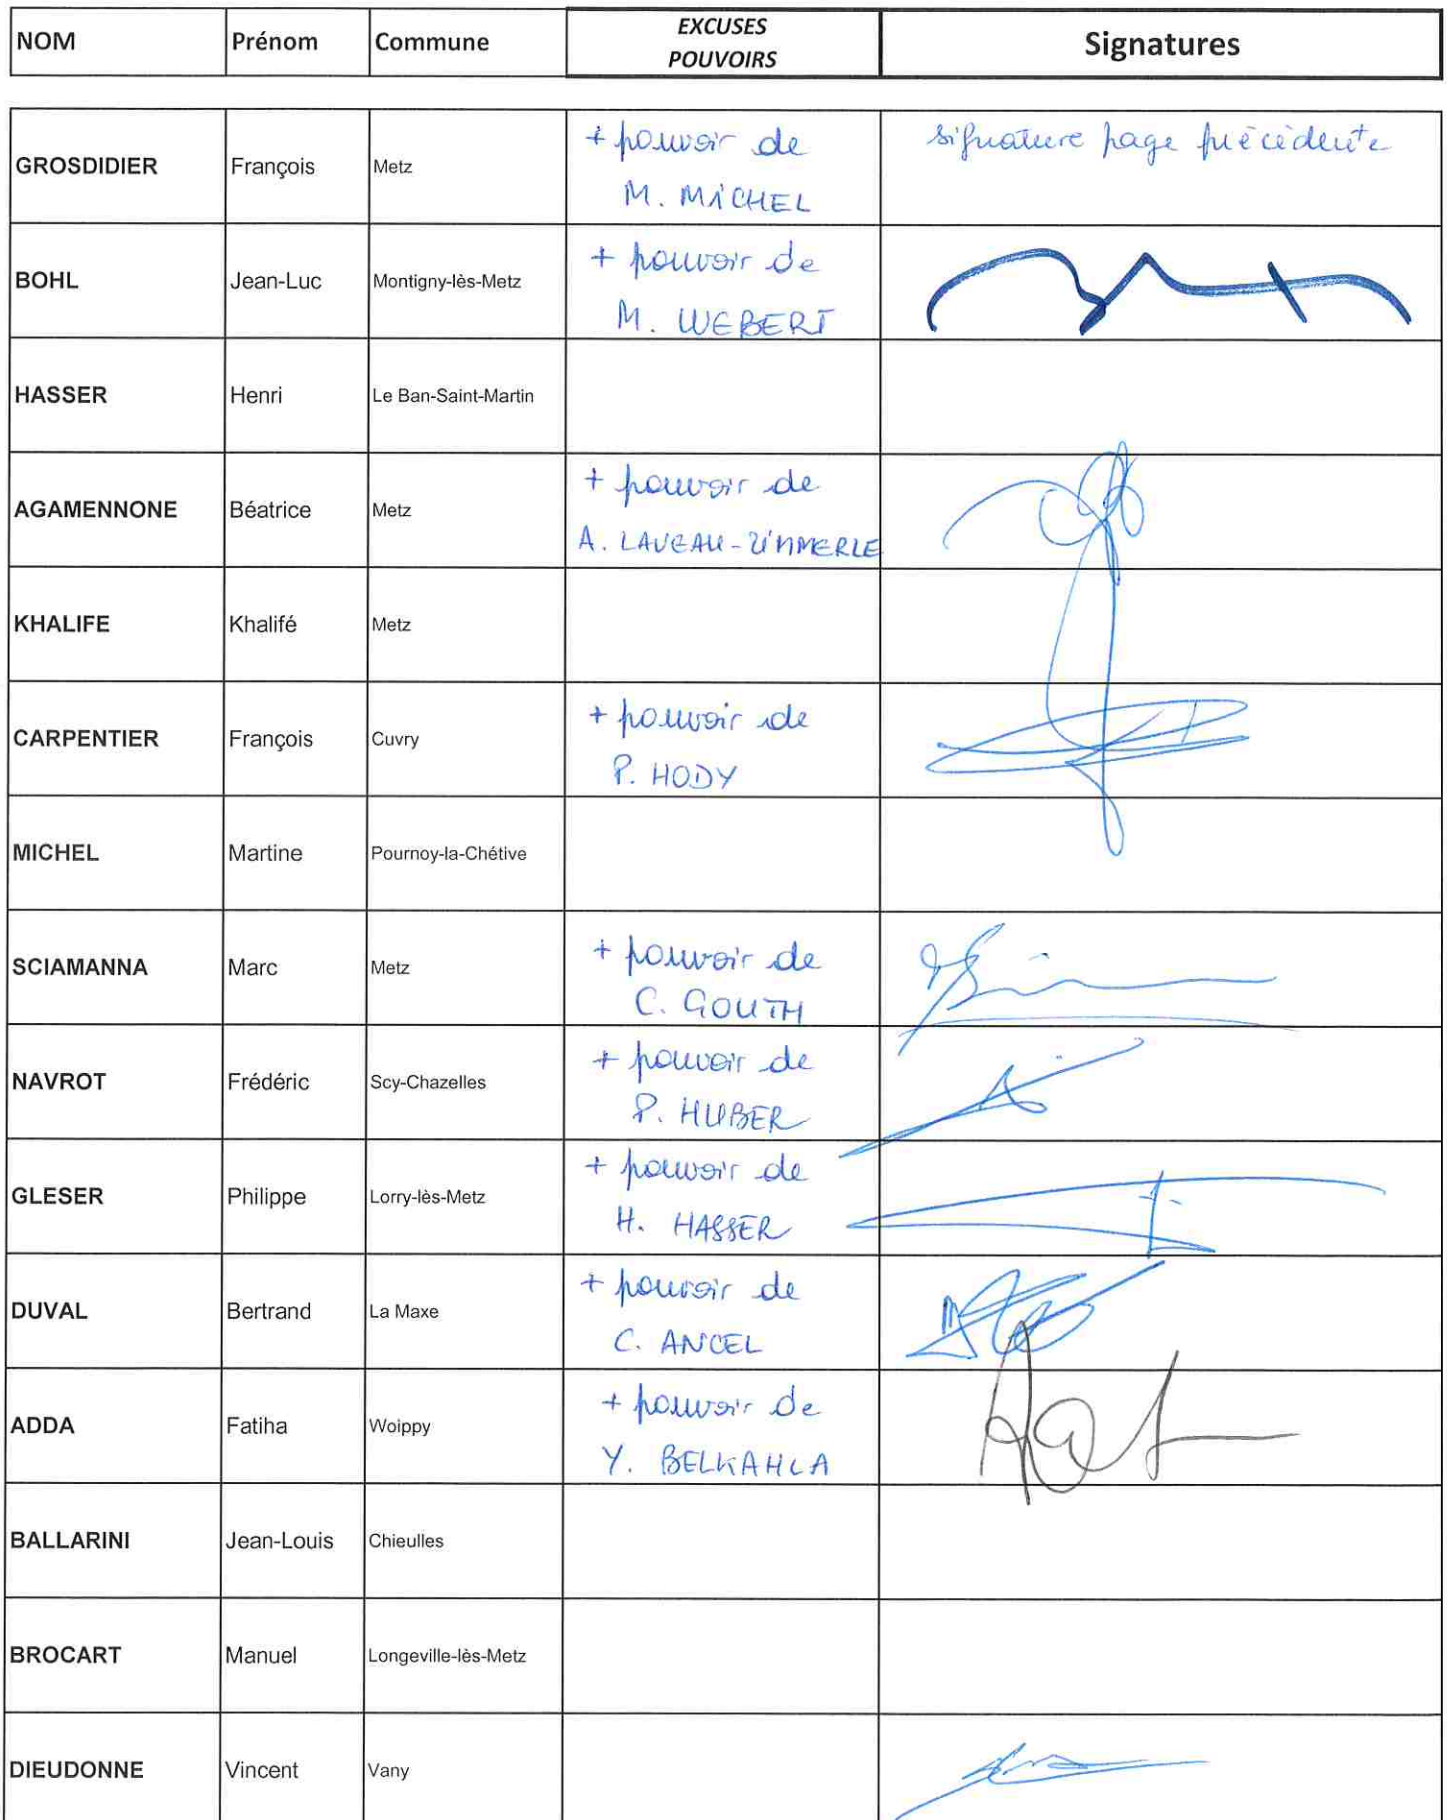 NOM Prénom Commune EXCUSES Signatures
POUVOIRS
GROSDIDIER François Metz + pouvoir de signature page précédente
M. MICHEL
BOHL Jean-Luc Montigny-lès-Metz + pouvoir de
M. WEBERT
HASSER Henri Le Ban-Saint-Martin
AGAMENNONE Béatrice Metz + pouvoir de
A. LAVEAU-ZIMMERLE
KHALIFE Khalifé Metz
CARPENTIER François Cuvry + pouvoir de
P. HODY
MICHEL Martine Pournoy-la-Chétive
SCIAMANNA Marc Metz + pouvoir de
C. GOUTH
NAVROT Frédéric Scy-Chazelles + pouvoir de
P. HUBER
GLESER Philippe Lorry-lès-Metz + pouvoir de
H. HASSER
DUVAL Bertrand La Maxe + pouvoir de
C. ANCEL
ADDA Fatiha Woippy + pouvoir de
Y. BELKAHLA
BALLARINI Jean-Louis Chieulles
BROCART Manuel Longeville-lès-Metz
DIEUDONNE Vincent Vany